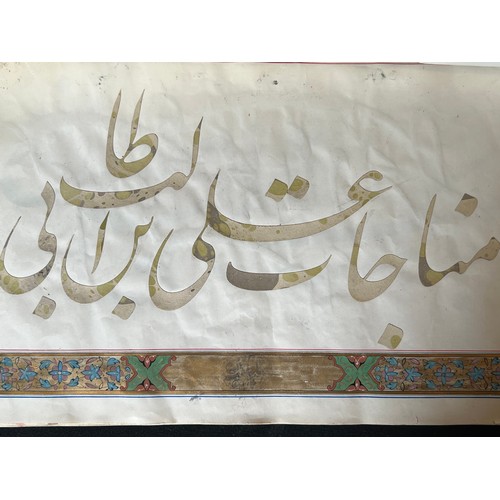 مناجات علی ابن ابی طالب